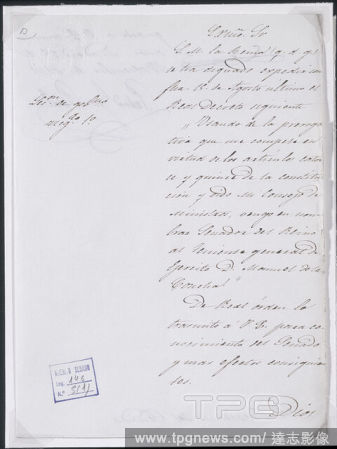 Excmo. Sr.
S. M. la Reina q. D. g.
se ha dignado expedir con
fha. de Agosto último el
Real Decreto siguiente
"Usando de la prerroga
tiva que me compete en
virtud de los artículos cator
ce y quince de la constitu
ción y oido mi Consejo de
Ministros, vengo en nom
brar Senador del Reino
al Teniente general de
Ejército D. Manuel de la
Concha"
De Real órden lo
traslado á V. E. para co
nocimiento del Senado
y mas efectos consiguien
tes.
Dios
ARCHIVO SENADO
Leg.
N.º
TPG
www.tpgnews.com/ 達志影像